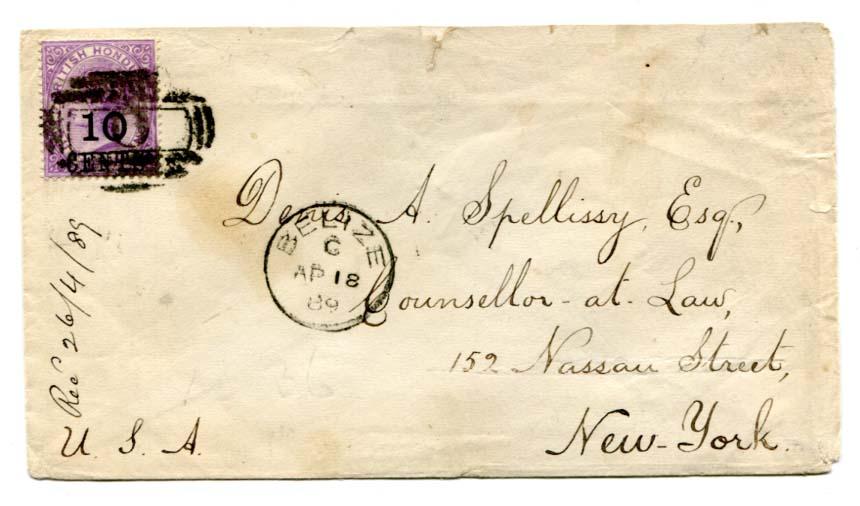 BRITISH HONDU
10
CENTS
Denis A. Spellissy, Esq.,
BELIZE
C
AP 18
89
Counsellor-at-Law,
152 Nassau Street,
New-York.
U. S. A.
Rec'd 26/4/89